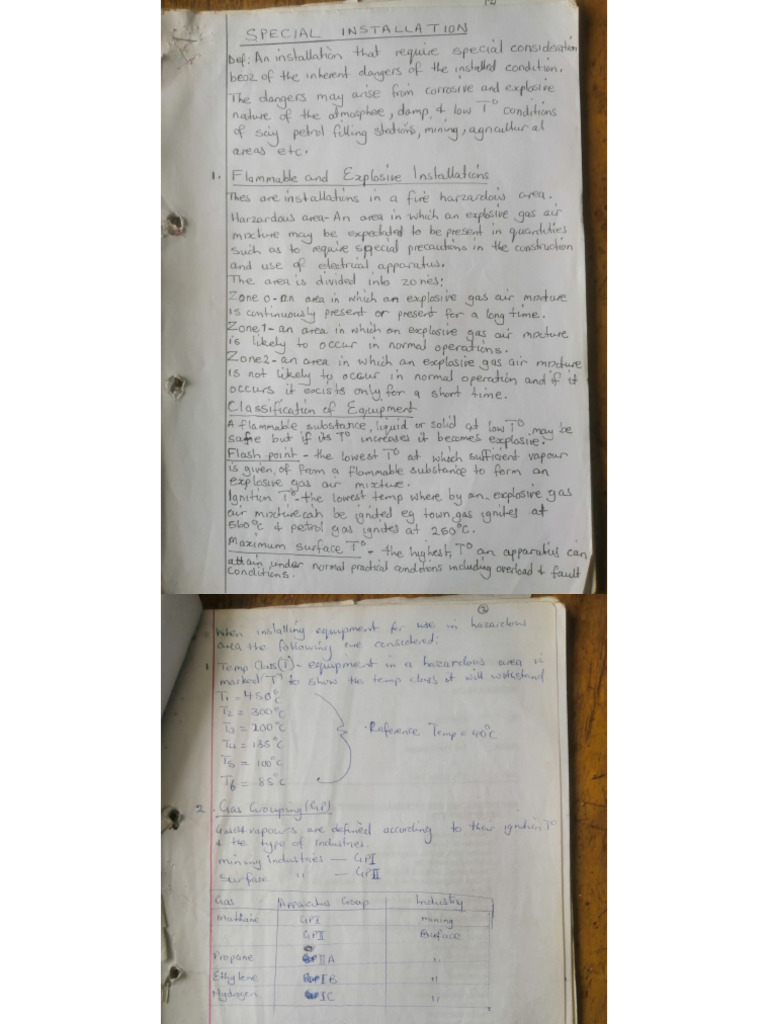 SPECIAL INSTALLATION
Def: An installation that require special consideration
becoz of the inherent dangers of the installed condition.
The dangers may arise from corrosive and explosive
nature of the atmosphee, damp, & low T° conditions
of say petrol filling stations, mining, agricultural
areas etc.
1. Flammable and Explosive Installations
Thes are installations in a fire harzardous area.
Harzardous area-An area in which an explosive gas air
mixture may be expected to be present in quantities
such as to require special precautions in the construction
and use of electrical apparatus.
The area is divided into zones;
Zone 0-an area in which an explosive gas air mixture
is continuously present or present for a long time.
Zone 1-an area in which an explosive gas air mixture
is likely to occur in normal operations.
Zone 2-an area in which an explosive gas air mixture
is not likely to occur in normal operation and if it
occurs it exists only for a short time.
Classification of Equipment
A flammable substance, liquid or solid at low T° may be
safe but if its T° increases it becomes explosive.
Flash point - the lowest T° at which sufficient vapour
is given, of from a flammable substance to form an
explosive gas air mixture.
Ignition T°-the lowest temp where by an explosive gas
air mixture can be ignited eg town gas ignites at
560°C & petrol gas ignites at 260°C.
Maximum surface T° - the highest T° an apparatus can
attain under normal practical conditions including overload & fault
conditions.
2
When installing equipment for use in hazardous
area the following are considered:
1 Temp Class(T) - equipment in a hazardous area is
marked 'T' to show the temp class it will withstand
T1 = 450°C
T2 = 300°C
T3 = 200°C
Reference Temp = 40°C
T4 = 135°C
T5 = 100°C
T6 = 85°C
2. Gas Grouping (GP)
vapours are defined according to their ignition T°
& the type of industries.
mining industries — GPI
surface " — GPII
Gas Apparatus Group Industry
Methane GPI mining
GPII surface
Propane IIA "
Ethylene IB "
Hydrogen IC "